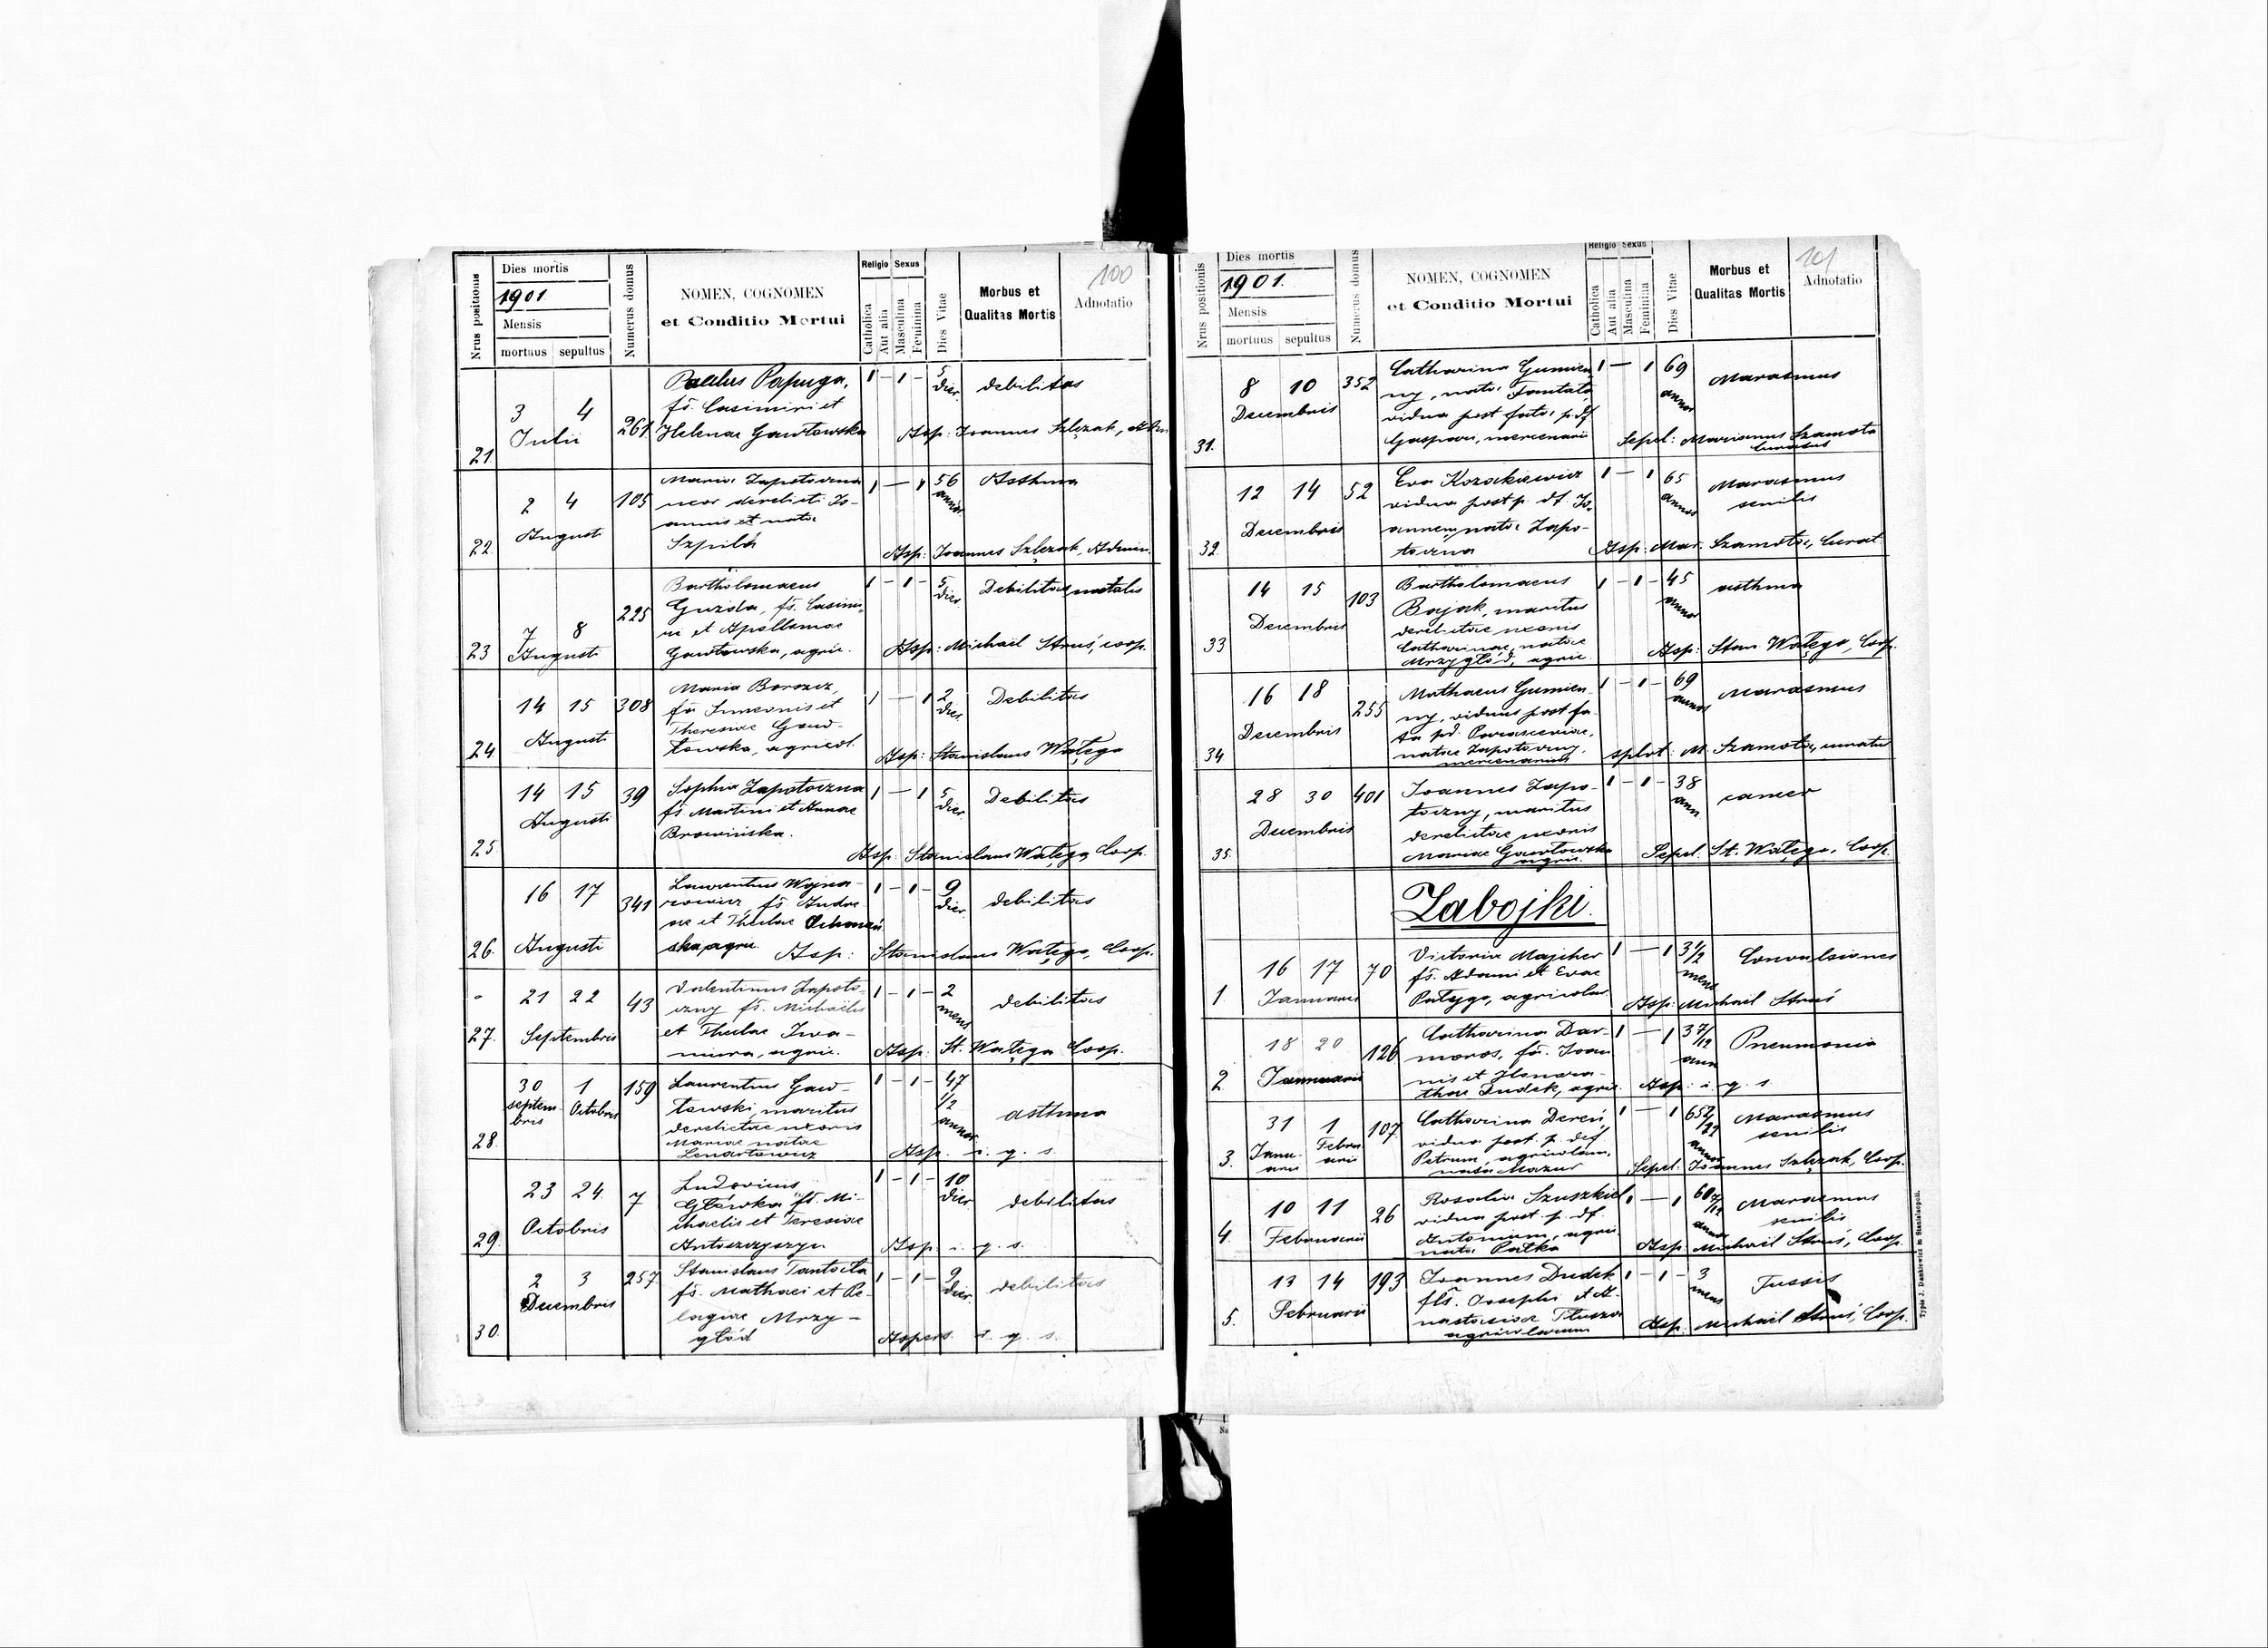 100
Nrus positionis
Dies mortis
1901.
Mensis
mortuus sepultus
Numerus domus
NOMEN, COGNOMEN
et Conditio Mortui
Religio Sexus
Catholica
Aut alia
Masculina
Feminina
Dies Vitae
Morbus et
Qualitas Mortis
Adnotatio
21.
3 4
Julii
261.
Paulus Papuga,
fs. Casimiri et
Helenae Gawłowska
1 – 1 –
5 dier.
debilitas
Asp: Joannes Szlęzak,
22.
2 4
Augusti
105
Maria Zapotoczna
uxor derelicti Jo-
annis et nata
Szpila
1 — 1
56 annor
Asthma
Asp: Joannes Szlęzak, Admin.
23
7 8
Augusti
225
Bartholomaeus
Guzda, fs. Casimi-
ri et Apolloniae
Gawłowska, agric.
1 – 1 –
5 dier.
Debilitas natalis
Asp: Michael Struś, coop.
24.
14 15
Augusti
308
Maria
fa Simeonis et
Theresiae Gaw-
łowska, agricol.
1 — 1
2 dier
Debilitas
Asp: Stanislaus Watęga
25
14 15
Augusti
39
Sophia Zapotoczna
fs Martini et Annae
Browińska.
1 — 1
5 dier.
Debilitas
Asp: Stanislaus Watęga, Coop.
26.
16 17
Augusti
341
Laurentius Wojna-
rowicz, fs. Andre
ae et Theclae
ska agric.
1 – 1 –
9 dier.
debilitas
Asp: Stanislaus Watęga, Coop.
27.
21 22
Septembris
43
Valentinus Zapoto-
czny fs. Michaelis
et Theclae Iwa-
agric.
1 – 1 –
2 mens
debilitas
Asp: St. Watęga Coop.
28.
30 septem-
bris
1 Octobris
159
Laurentius Gaw-
łowski, maritus
derelictae uxoris
Mariae natae
Lenartowicz
1 – 1 –
47 1/2 annor
asthma
Asp. i. q. s.
29.
23 24.
Octobris
7
Ludovicus
Główka fs. Mi-
chaelis et Teresiae
Antoszczyszyn
1 – 1 –
10 dier.
debilitas
Asp. i. q. s.
30.
2 3
Decembris
257.
Stanislaus Tantała
fs. Mathaei et Pe-
lagiae Mrzy-
głód
1 – 1 –
9 dier.
debilitas
Aspers. i. q. s.
101
Nrus positionis
Dies mortis
1901.
Mensis
mortuus sepultus
Numerus domus
NOMEN, COGNOMEN
et Conditio Mortui
Religio Sexus
Catholica
Aut alia
Masculina
Feminina
Dies Vitae
Morbus et
Qualitas Mortis
Adnotatio
31.
8 10
Decembris
352
Catharina Gumien-
ny, nata Tantała
vidua post fata p. df
Gaspari, mercenarii
1 — 1
69 annor
Marasmus
Sepel: Marianus Szamota
Curatus
32.
12 14
Decembris
52
Eva Kozakiewicz
vidua post p. df. Jo-
annem, nata Zapo-
toczna
1 — 1
65 annor
Marasmus
senilis
Asp: Mar. Szamota, Curat
33
14 15
Decembris
103
Bartholomaeus
Bajak, maritus
derelictae uxoris
Catharinae, natae
Mrzygłód, agric
1 – 1 –
45 annor
asthma
Asp: Stan. Watęga, Coop.
34
16 18
Decembris
255
Mathaeus Gumien-
ny, viduus post fa-
ta pd. Parasceviae,
natae Zapotoczny,
mercenarius
1 – 1 –
69 annor
Marasmus
splvt: M. Szamota, curatus
35.
28 30
Decembris
401
Joannes Zapo-
toczny, maritus
derelictae uxoris
Mariae Gawłowska
agric.
1 – 1 –
38 ann
cancer
Sepel: St. Watęga, Coop.
Zabojki.
1
16 17
Januarii
70
Victoria Majcher
fs. Adami et Evae
Patyga, agricolar
1 — 1
3 1/2 mens
Convulsiones
Asp: Michael Struś
2
18 20
Januarii
126
Catharina Dar-
moros, fs. Joan
nis et Honora-
thae Dudek, agric.
1 — 1
3 7/12 ann
Pneumonia
Asp: i. q. s.
3.
31 Janu-
arii
1 Febru
arii
107
Catharina Dereń,
vidua post p. def.
Petrum, agricolam,
nata Mazur
1 — 1
Marasmus
senilis
Sepel: Joannes Szlęzak, Coop.
4.
10 11
Februarii
26
Rosalia Szuszkiel
vidua post. p. df.
Antonium, agric
nata Pałka
1 — 1
60 7/12 annor
Marasmus
senilis
Asp Michael Struś, Coop.
5.
13 14
Februarii
193
Joannes Dudek
fls. Josephi et A-
nastasiae Tłuszcz
agricolarum
1 – 1 –
3 mens
Tussis
Asp: Michael Struś, Coop.
Typis J. Dankiewicz in Stanislaopoli.